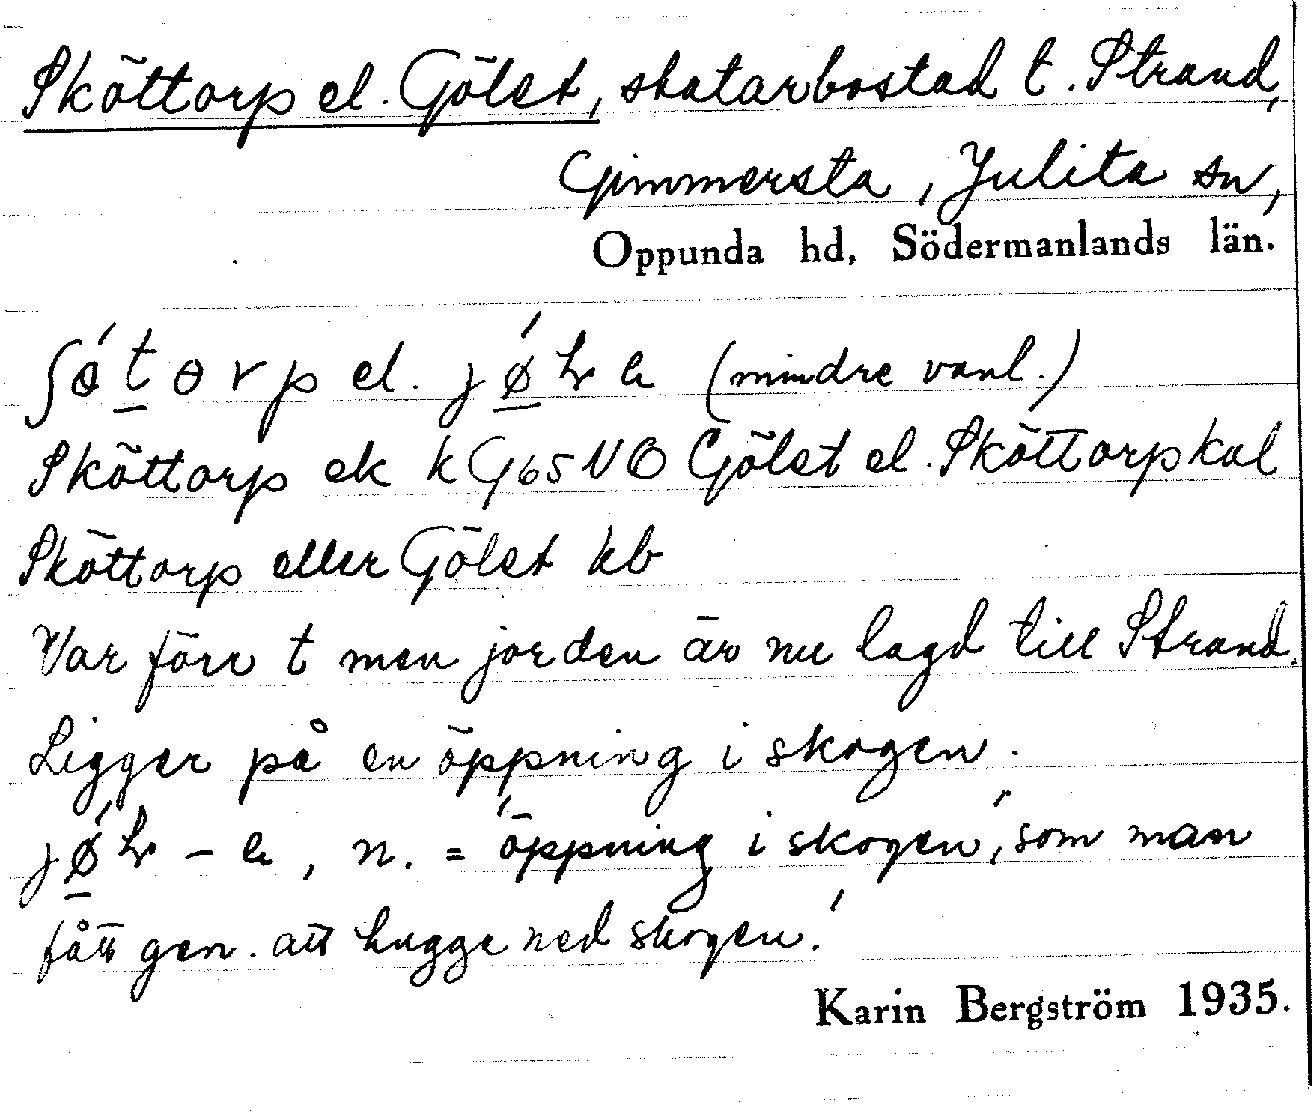 Sköttorp el. Gölet, statarbostad t. Strand,
Gimmersta, Julita sn,
Oppunda hd, Södermanlands län.
el. (mindre vanl.)
Sköttorp ek k G65NO Gölet el. Sköttorp kal
Sköttorp eller Gölet kb
Var förr t men jorden är nu lagd till Strand.
Ligger på en öppning i skogen.
n. = 'öppning i skogen', som man
fått gen. att hugga ned skogen.'
Karin Bergström 1935.